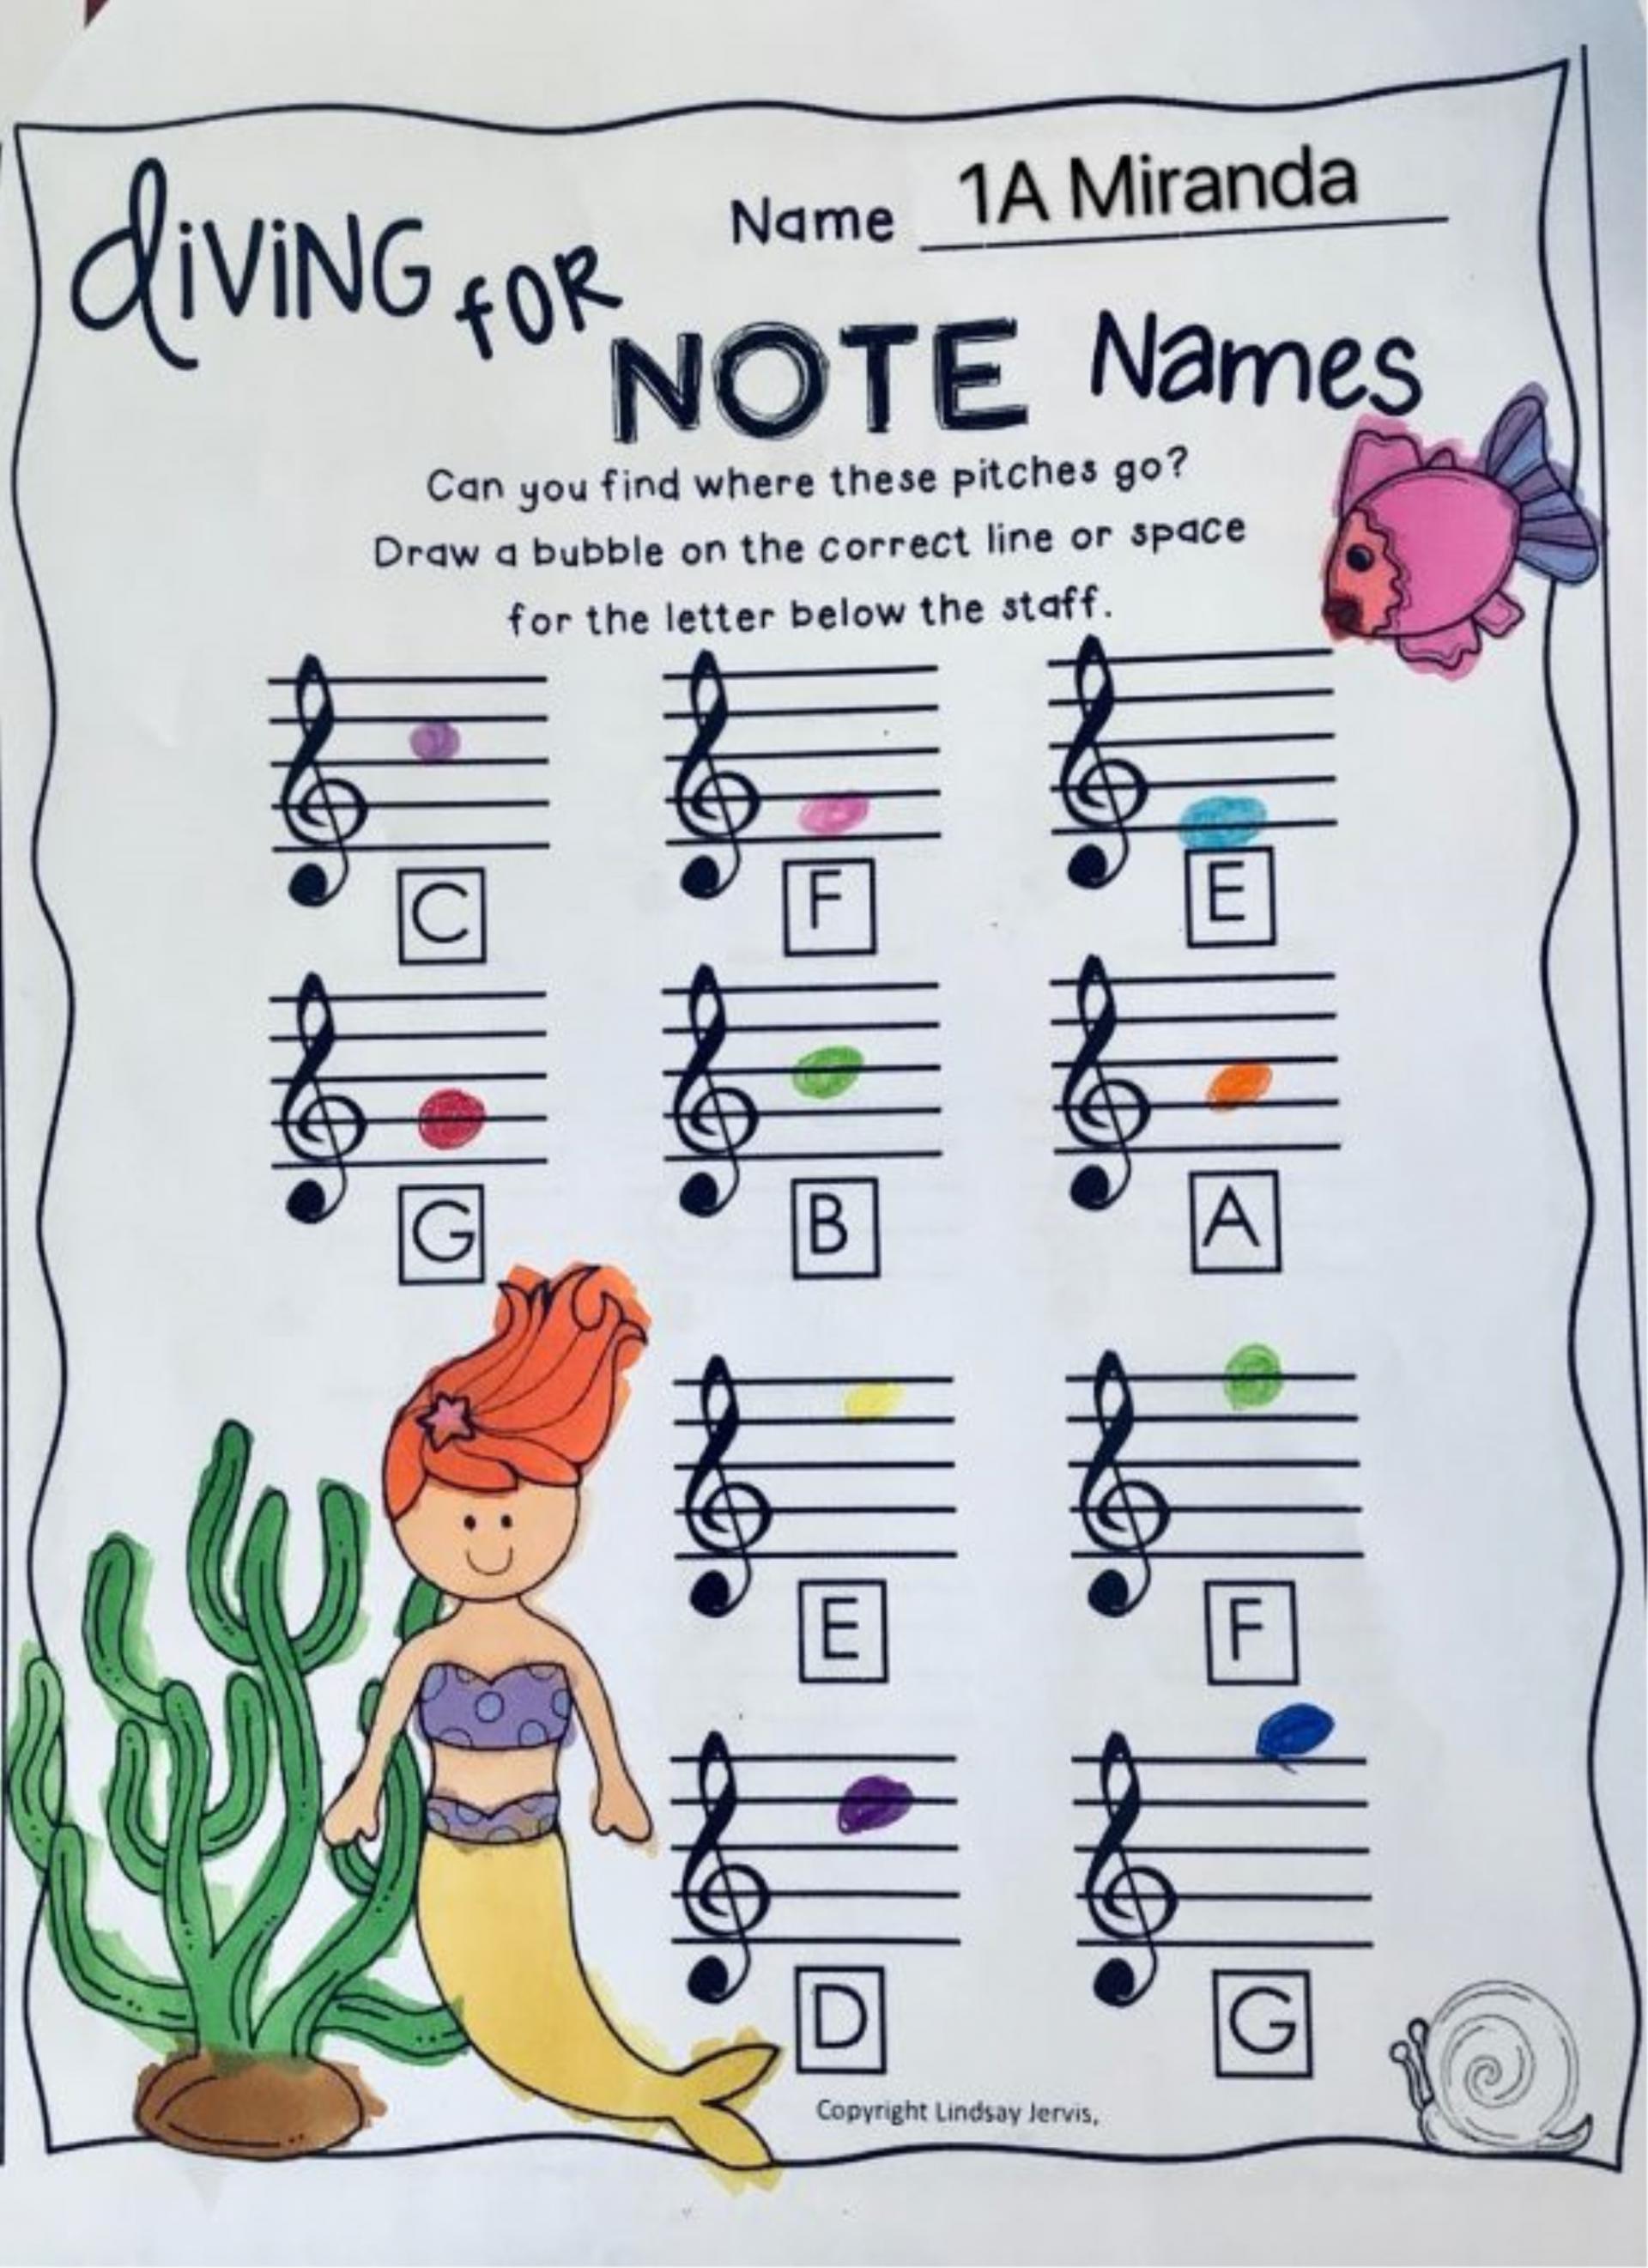 Name 1A Miranda
diViNG fOR
NOTE Names
Can you find where these pitches go?
Draw a bubble on the correct line or space
for the letter below the staff.
C F E
G B A
E F
D G
Copyright Lindsay Jervis,